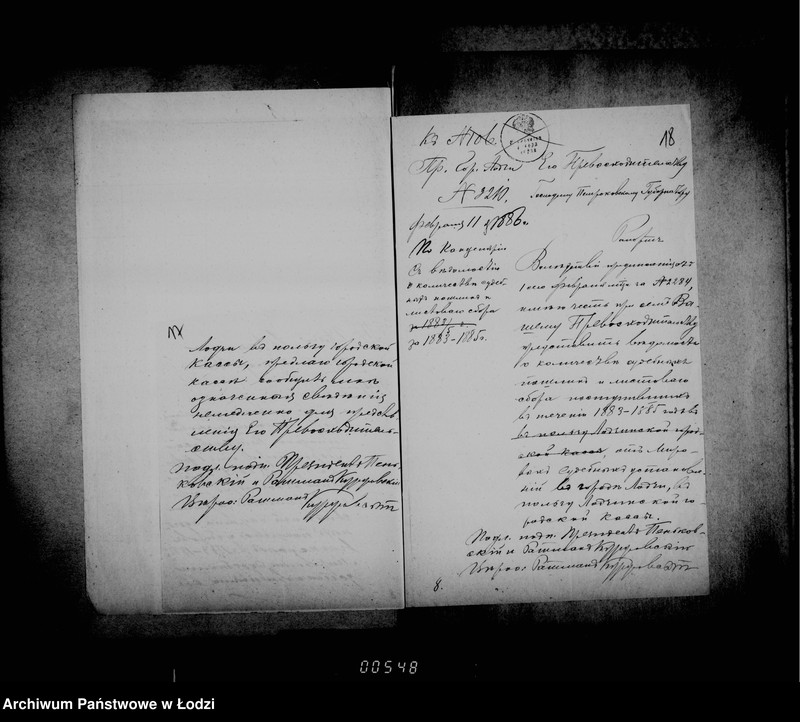 Лодзи въ пользу городской
кассы, предлаю городской
кассѣ сообщить мнѣ
означенныя свѣдѣнія
немедленно для представ
ленія Его Превосходитель-
ству.
Подл. подп. Президентъ Пень-
ковскій и Ратманъ
Вѣрно: Ратманъ
Къ № 106
18
Пр. Гор. Лодзи
№ 2210.
Февраля 11 д. 1886 г.
По Канцеляріи
Съ вѣдомостію
о количествѣ судеб
ныхъ пошлинъ и
листоваго сбора
за 1883-1885 г.
Его Превосходительству
Господину Петроковскому Губернатору
Рапортъ
Вслѣдствіе предписанія отъ
февраля за № 2284,
имѣю честь при семъ Ва-
шему Превосходительству
представить вѣдомость
о количествѣ судебныхъ
пошлинъ и листоваго
сбора поступившихъ
въ теченіи 1883-1885 годовъ
въ пользу Лодзинской город-
ской кассы, отъ Миро-
выхъ судебныхъ установле-
ній въ городѣ Лодзи, въ
пользу Лодзинской го-
родской кассы.
Подл. подп. Президентъ Пеньков-
скій и Ратманъ
Вѣрно: Ратманъ
8.
00548
Archiwum Państwowe w Łodzi